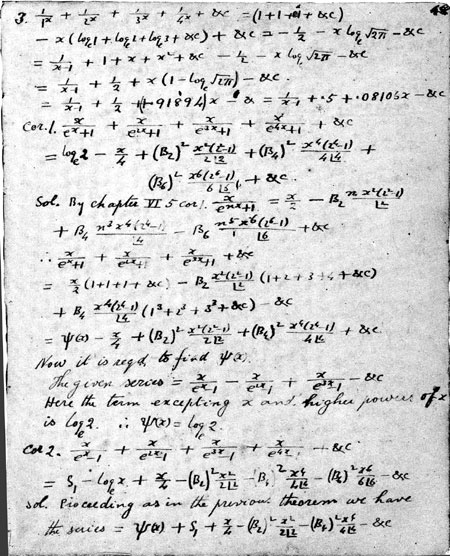 3. 1/1^x + 1/2^x + 1/3^x + 1/4^x + &c = (1+1+1+ &c)
- x (log_e 1 + log_e 2 + log_e 3 + &c) + &c = - 1/2 - x log_e √2π - &c
= 1/(x-1) + 1 + x + x² + &c - 1/2 - x log_e √2π - &c
= 1/(x-1) + 1/2 + x (1 - log_e √2π) - &c.
= 1/(x-1) + 1/2 + (1-.91894)x - & = 1/(x-1) + .5 + .08106x - &c
Cor. 1. x/(e^x+1) + x/(e^2x+1) + x/(e^3x+1) + x/(e^4x+1) + &c
= log_e 2 - x/4 + (B₂)² x²(2²-1)/2|2 + (B₄)² x⁴(2⁴-1)/4|4 +
(B₆)² x⁶(2⁶-1)/6|6 + &c.
Sol. By chapter VI 5 cor 1. x/(e^nx+1) = x/2 - B₂ n x²(2²-1)/|2
+ B₄ n³x⁴(2⁴-1)/|4 - B₆ n⁵x⁶(2⁶-1)/|6 + &c
∴ x/(e^x+1) + x/(e^2x+1) + x/(e^3x+1) + &c
= x/2 (1+1+1+ &c) - B₂ x²(2²-1)/|2 (1+2+3+4+ &c)
+ B₄ x⁴(2⁴-1)/|4 (1³+2³+3³+ &c) - &c
= ψ(x) - x/4 + (B₂)² x²(2²-1)/2|2 + (B₄)² x⁴(2⁴-1)/4|4 + &c
Now it is reqd. to find ψ(x).
The given series = x/(e^x-1) - x/(e^2x-1) + x/(e^3x-1) - &c
Here the term excepting x and higher powers of x
is log_e 2. ∴ ψ(x) = log_e 2.
Cor 2. x/(e^x-1) + x/(e^2x-1) + x/(e^3x-1) + x/(e^4x-1) + &c
= S₁ - log_e x + x/4 - (B₂)² x²/2|2 - (B₄)² x⁴/4|4 - (B₆)² x⁶/6|6 - &c
Sol. Proceeding as in the previous theorem we have
the series = ψ(x) + S₁ + x/4 - (B₂)² x²/2|2 - (B₄)² x⁴/4|4 - &c